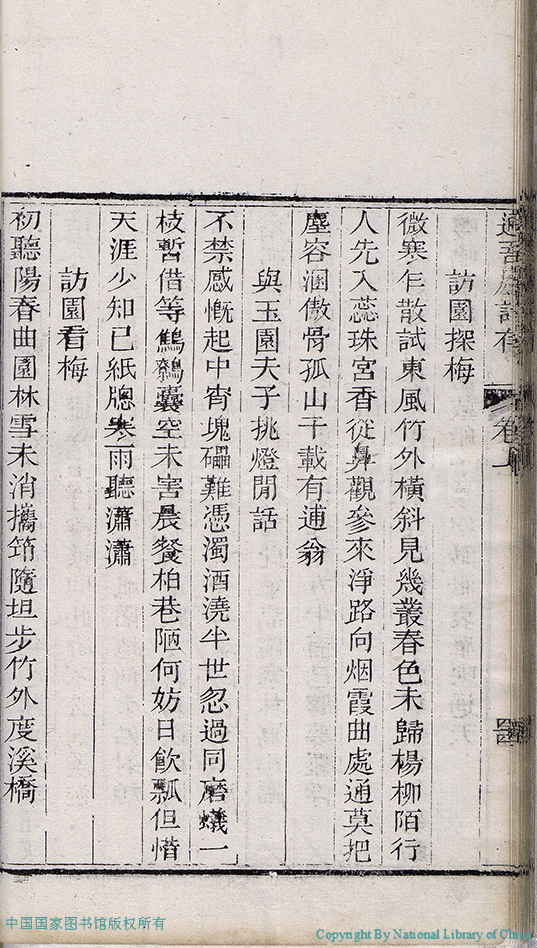 訪園探梅
微寒乍散試東風竹外橫斜見幾叢春色未歸楊柳陌行
人先入蕊珠宮香從鼻觀參來淨路向烟霞曲處通莫把
塵容溷傲骨孤山千載有逋翁
與玉園夫子挑燈閒話
不禁感慨起中宵塊礧難憑濁酒澆半世忽過同磨蟻一
枝暫借等鷦鷯囊空未害晨餐柏巷陋何妨日飲瓢但惜
天涯少知己紙牕寒雨聽瀟瀟
訪園看梅
初聽陽春曲園林雪未消攜筇隨坦步竹外度溪橋
中国国家图书馆版权所有
Copyright By National Library of China